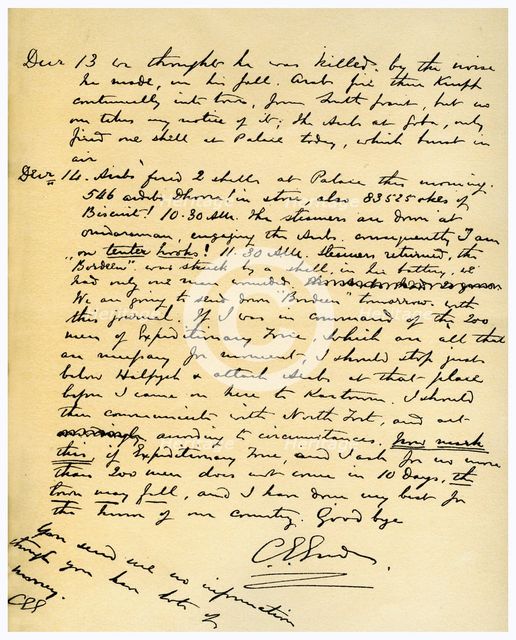 Decr 13 we thought he was killed by the noise
he made, in his fall. Arabs fire their Krupp
continually into town, from South front, but no
one takes any notice of it; the Arabs at Goba, only
fired one shell at Palace today, which burst in
air
Decr 14. Arabs fired 2 shells at Palace this morning.
546 ardebs Dhoora! in store, also 83525 okes of
Biscuit! 10.30 A.M. The steamers are down at
Omdurman, engaging the Arabs, consequently I am
"on tenter hooks! 11.30 A.M. Steamers returned, the
"Bordeen" was struck by a shell, in her battery, we
had only one man wounded.
We are going to send down "Bordeen" tomorrow with
this journal. If I was in command of the 200
men of Expeditionary Force, which are all that
are necessary for moment, I should stop just
below Halfyeh & attack Arabs at that place
before I came on here to Kartoum. I should
then communicate with North Fort, and act
according to circumstances, Now mark
this, if Expeditionary Force, and I ask for no more
than 200 men does not come in 10 days, the
town may fall, and I have done my best for
the honor of our country. Good bye
C G Gordon
You send me no information
though you have lots of
money.
CGG